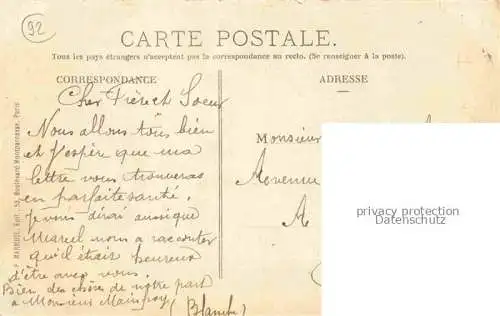 92
CARTE POSTALE.
Tous les pays étrangers n'acceptent pas la correspondance au recto. (Se renseigner à la poste).
CORRESPONDANCE
ADRESSE
Cher Frère et Soeur
Nous allons tous bien
et j'espère que ma
lettre vous trouveras
en parfaite santé.
Je vous dirai aussi que
Marcel nous a raconter
qu'il était heureux
d'être avec vous.
Bien des choses de notre part
à Monsieur
(Blanche)
Monsieur
Avenue
A
privacy protection
Datenschutz
F. MARMUSE, Edit., Boulevard Montparnasse, Paris